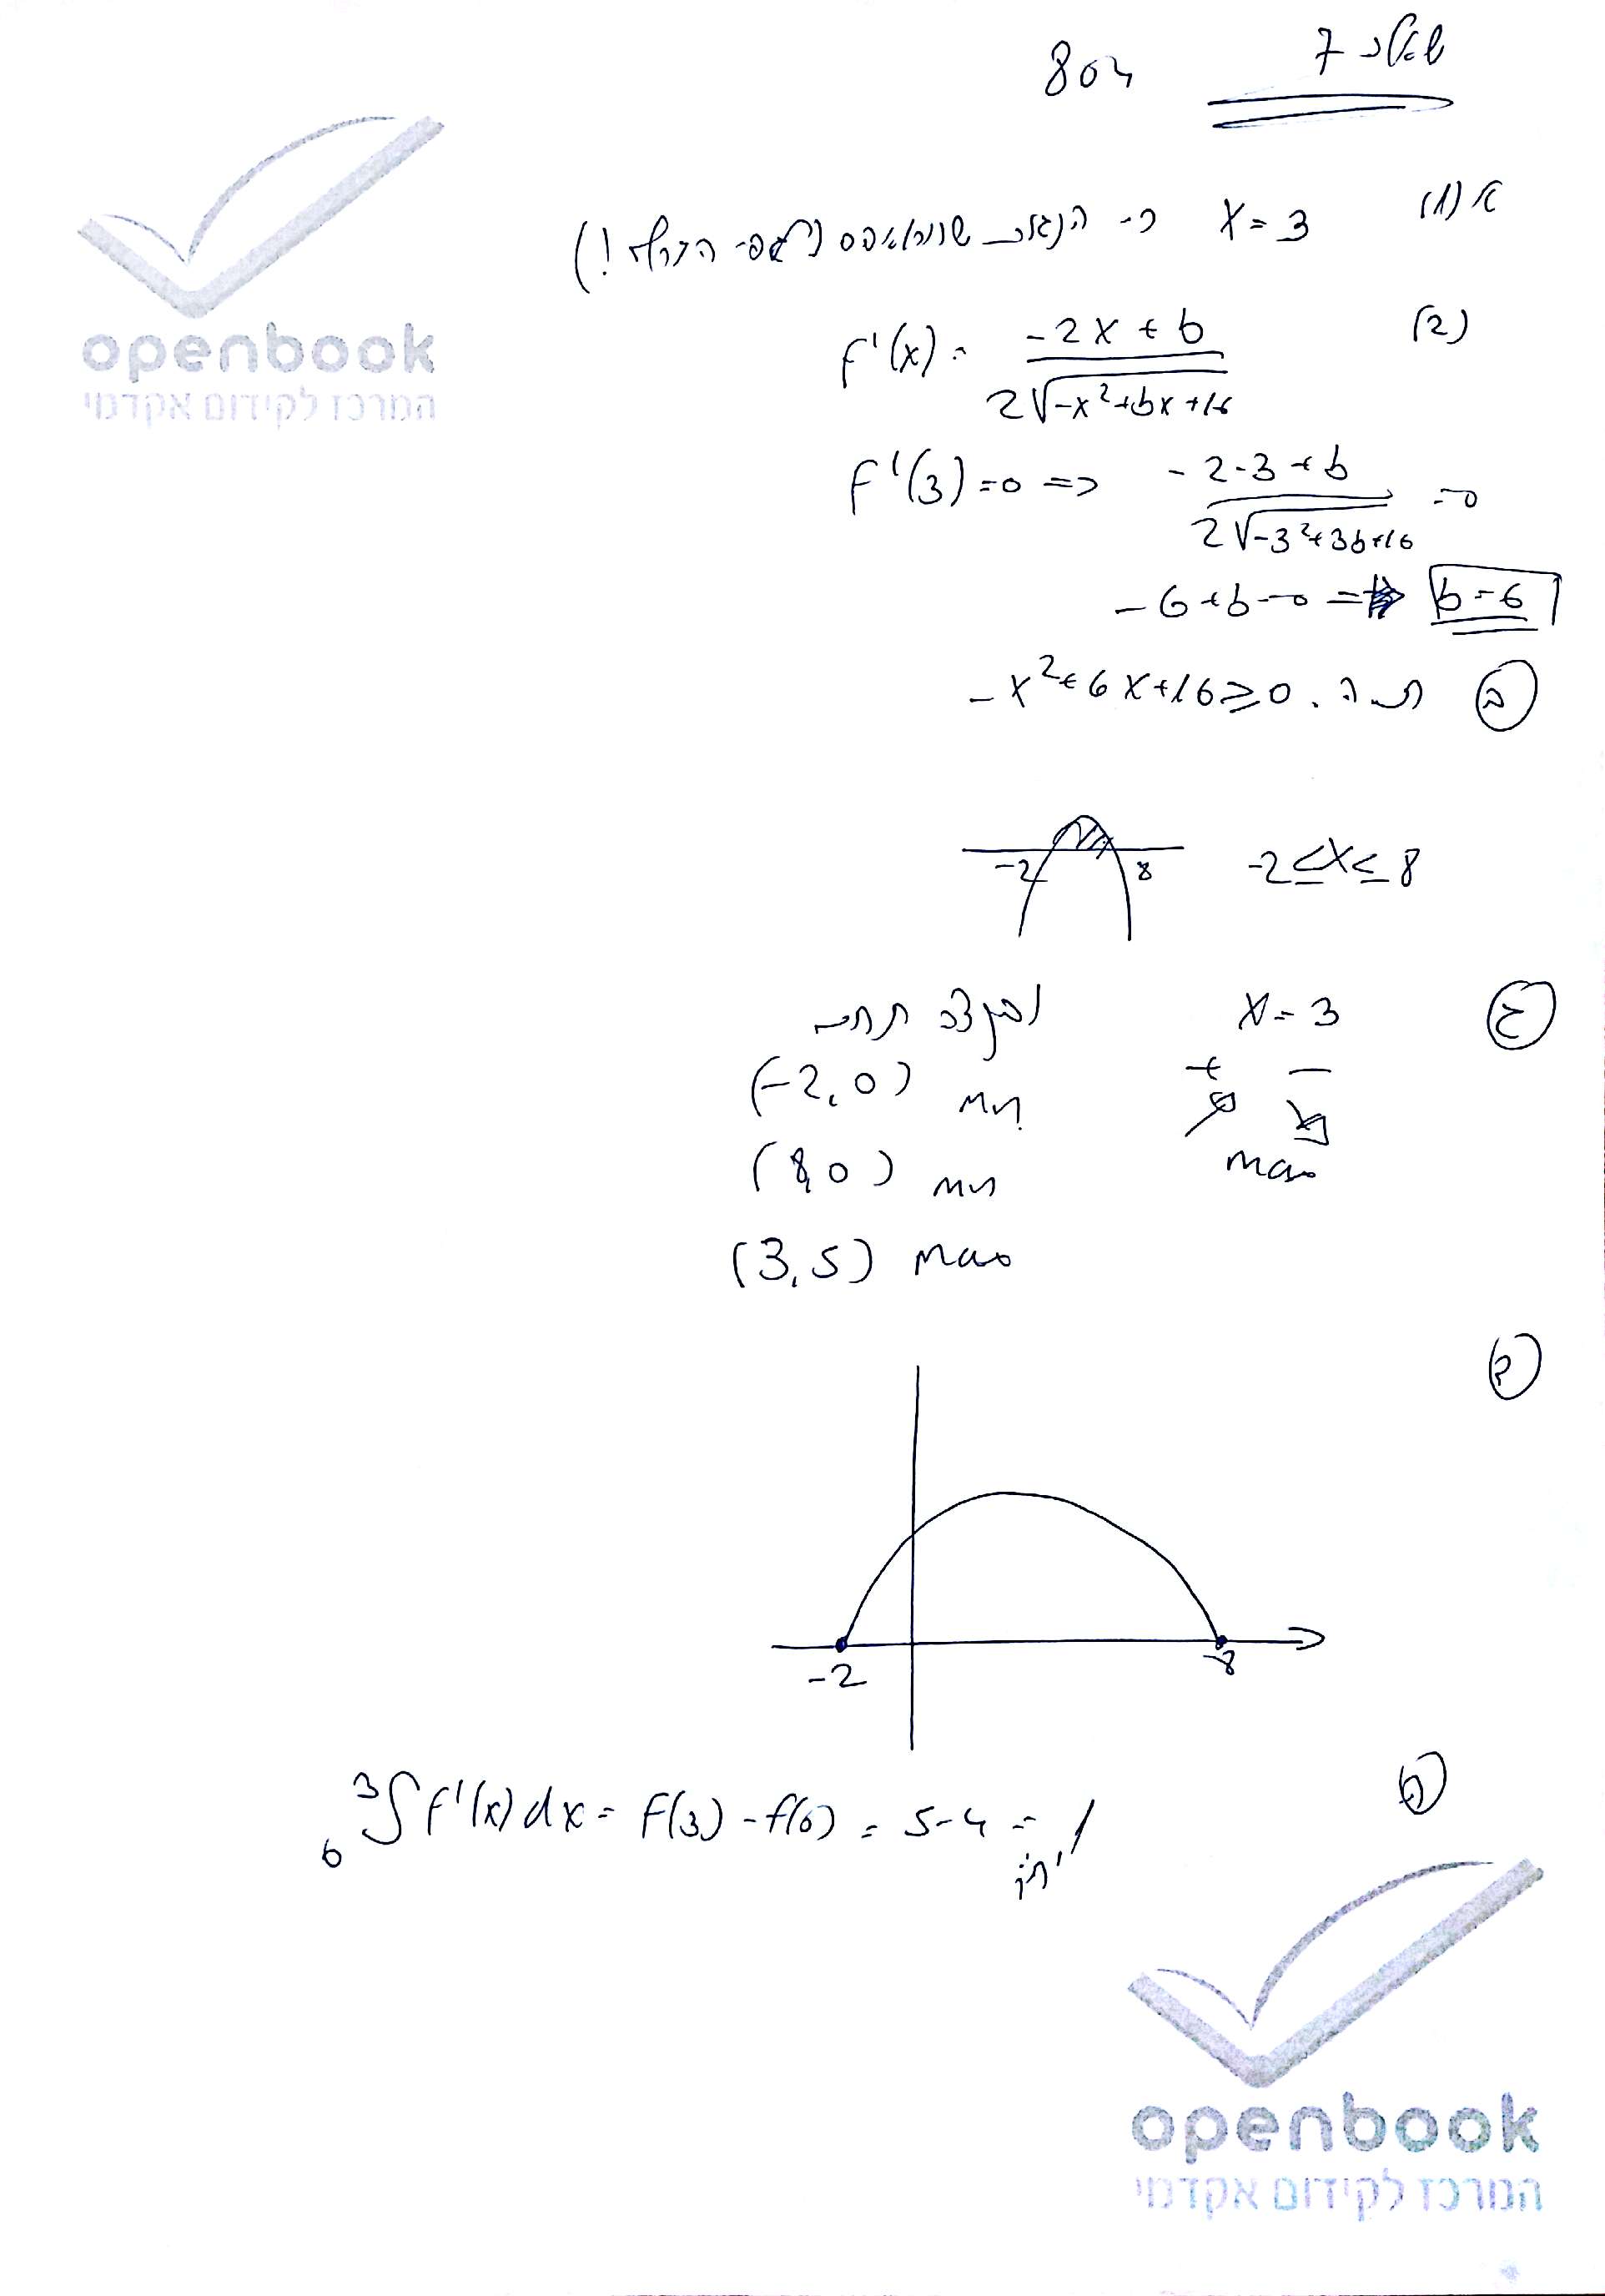 שאלה 7 804
openbook
המרכז לקידום אקדמי
א (1) x = 3 כי הנגזרת מתאפסת (לפי הגרף!)
(2) f'(x) = \frac{-2x+b}{2\sqrt{-x^2+bx+16}}
f'(3)=0 => \frac{-2·3+b}{2\sqrt{-3^2+3b+16}} =0
-6+b=0 => b=6
ב ת.ה. -x^2+6x+16≥0
-2 8 -2≤x≤8
ג x=3 ובקצה תחום
+ -
(-2,0) min
max
(8,0) min
(3,5) max
ד
-2 -8
ה ₀³∫f'(x)dx = f(3)-f(0) = 5-4 = 1
יח'
openbook
המרכז לקידום אקדמי